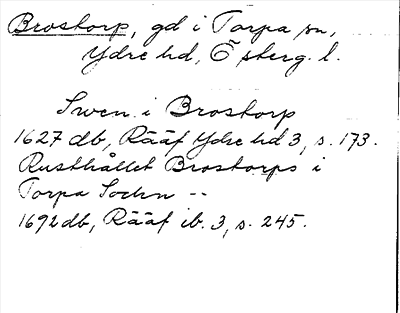 Brostorp, gd i Torpa sn,
Ydre hd, Österg. l.
Swen i Brostorp
1627 db, Rääf Ydre hd 3, s. 173.
Rusthållet Brostorps i
Torpa Sockn --
1692 db, Rääf ib. 3, s. 245.